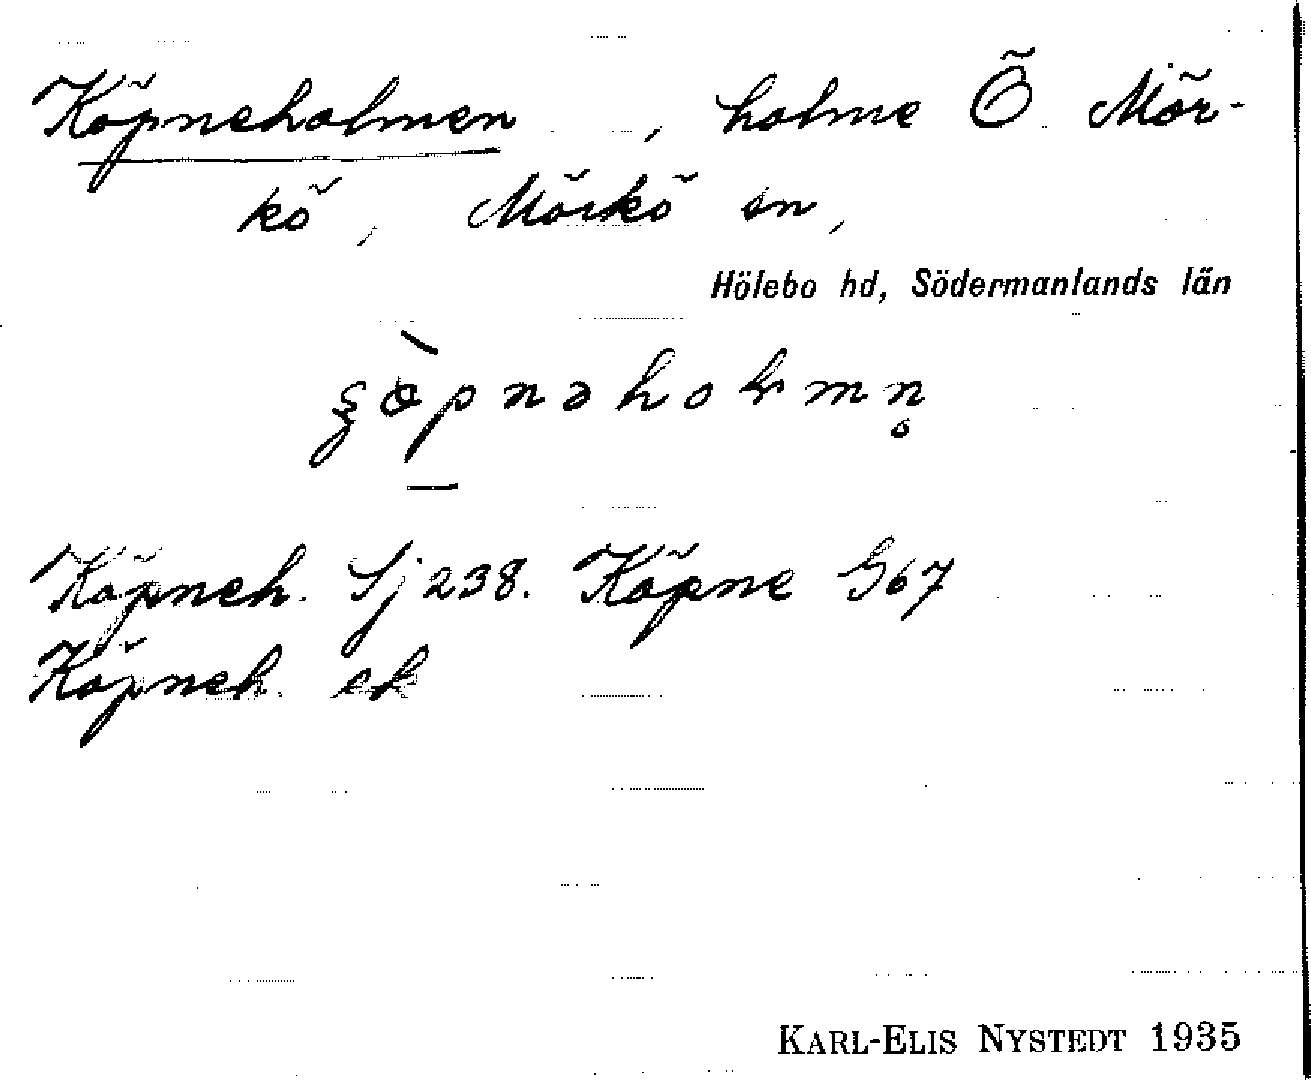 Köpneholmen, holme Ö Mör-
kö, Mörkö sn,
Hölebo hd, Södermanlands län
Köpneh. Sj 238. Köpne G67
Köpneh. ek
KARL-ELIS NYSTEDT 1935